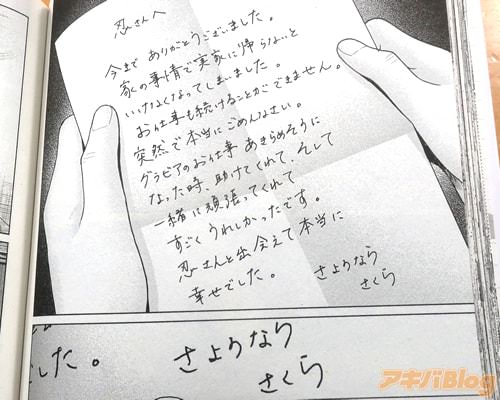 忍さんへ
今まで ありがとうございました。
家の事情で実家に帰らないと
いけなくなってしまいました。
お仕事も続けることができません。
突然で本当にごめんなさい。
グラビアのお仕事 あきらめそうに
なった時、助けてくれて、そして
一緒に頑張ってくれて
すごく うれしかったです。
忍さんと出会えて本当に
幸せでした。
さよりなら
さくら
でした。
さよりなら
さくら
アキバBlog